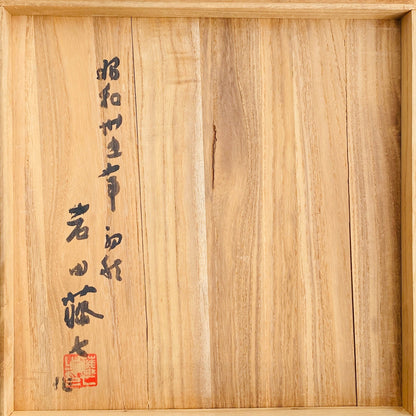 昭和卅五年 初秋
岩田藤七
作